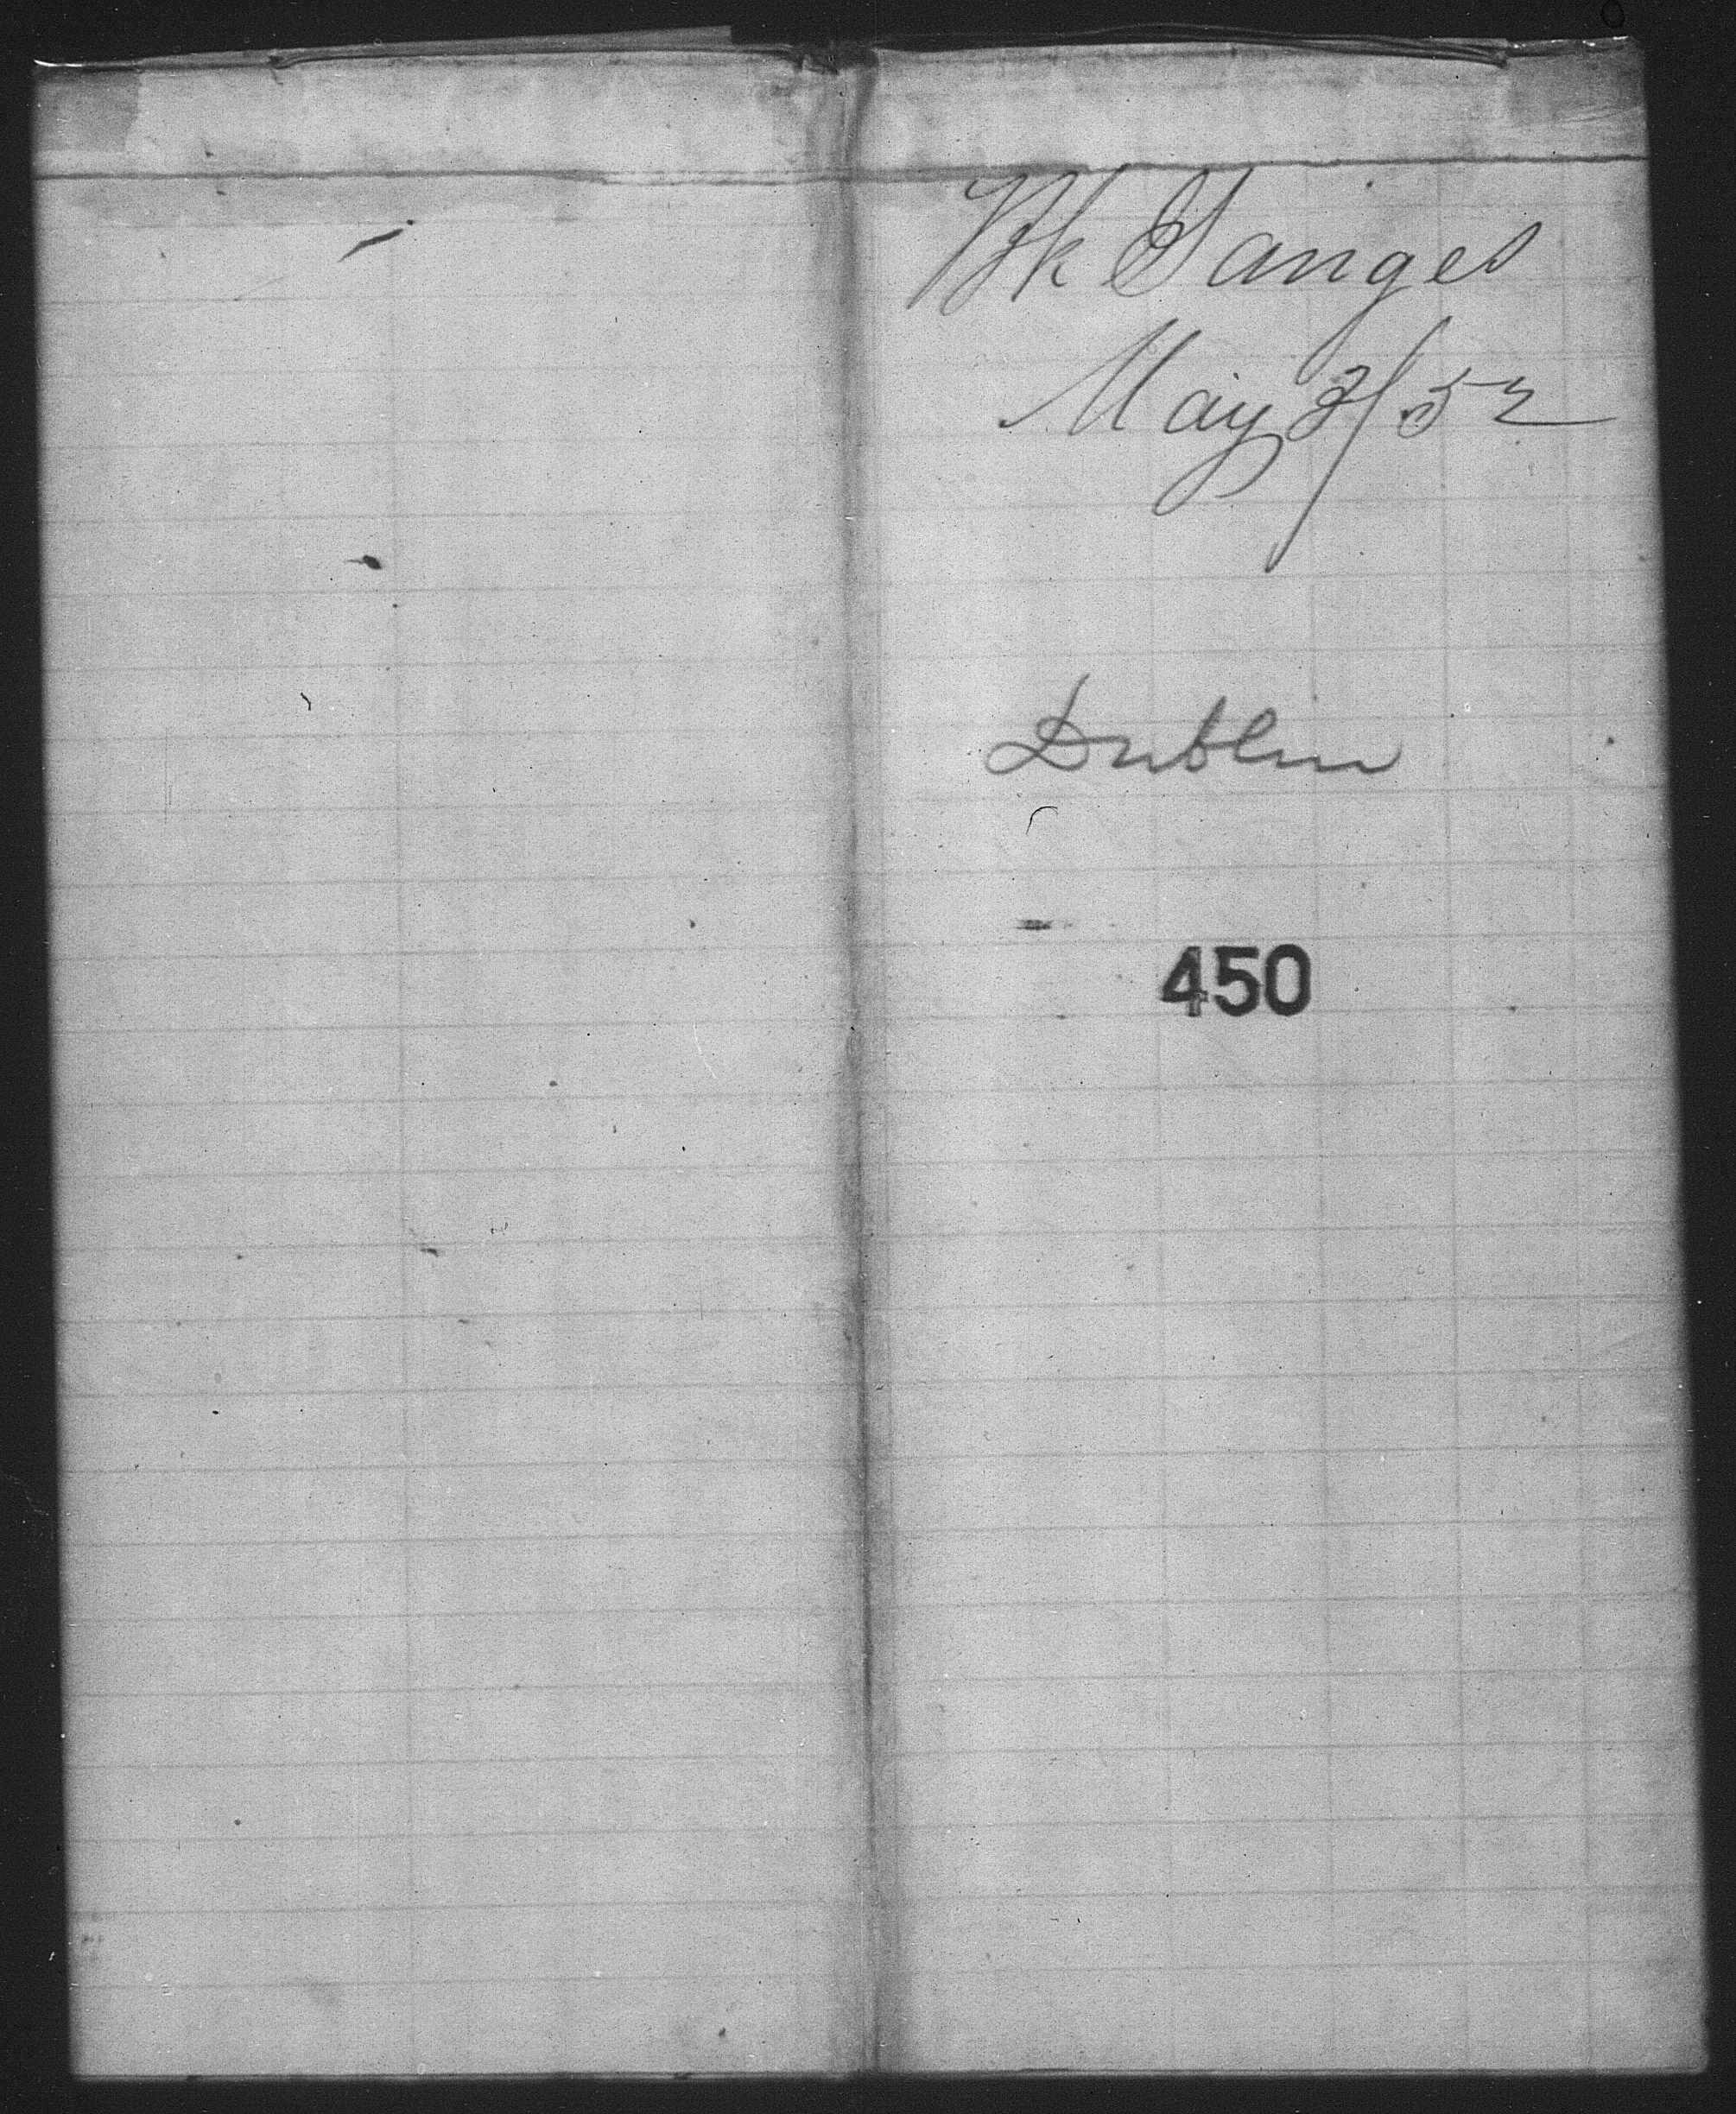 Bk Ganges
May 3/52
Dublin
450